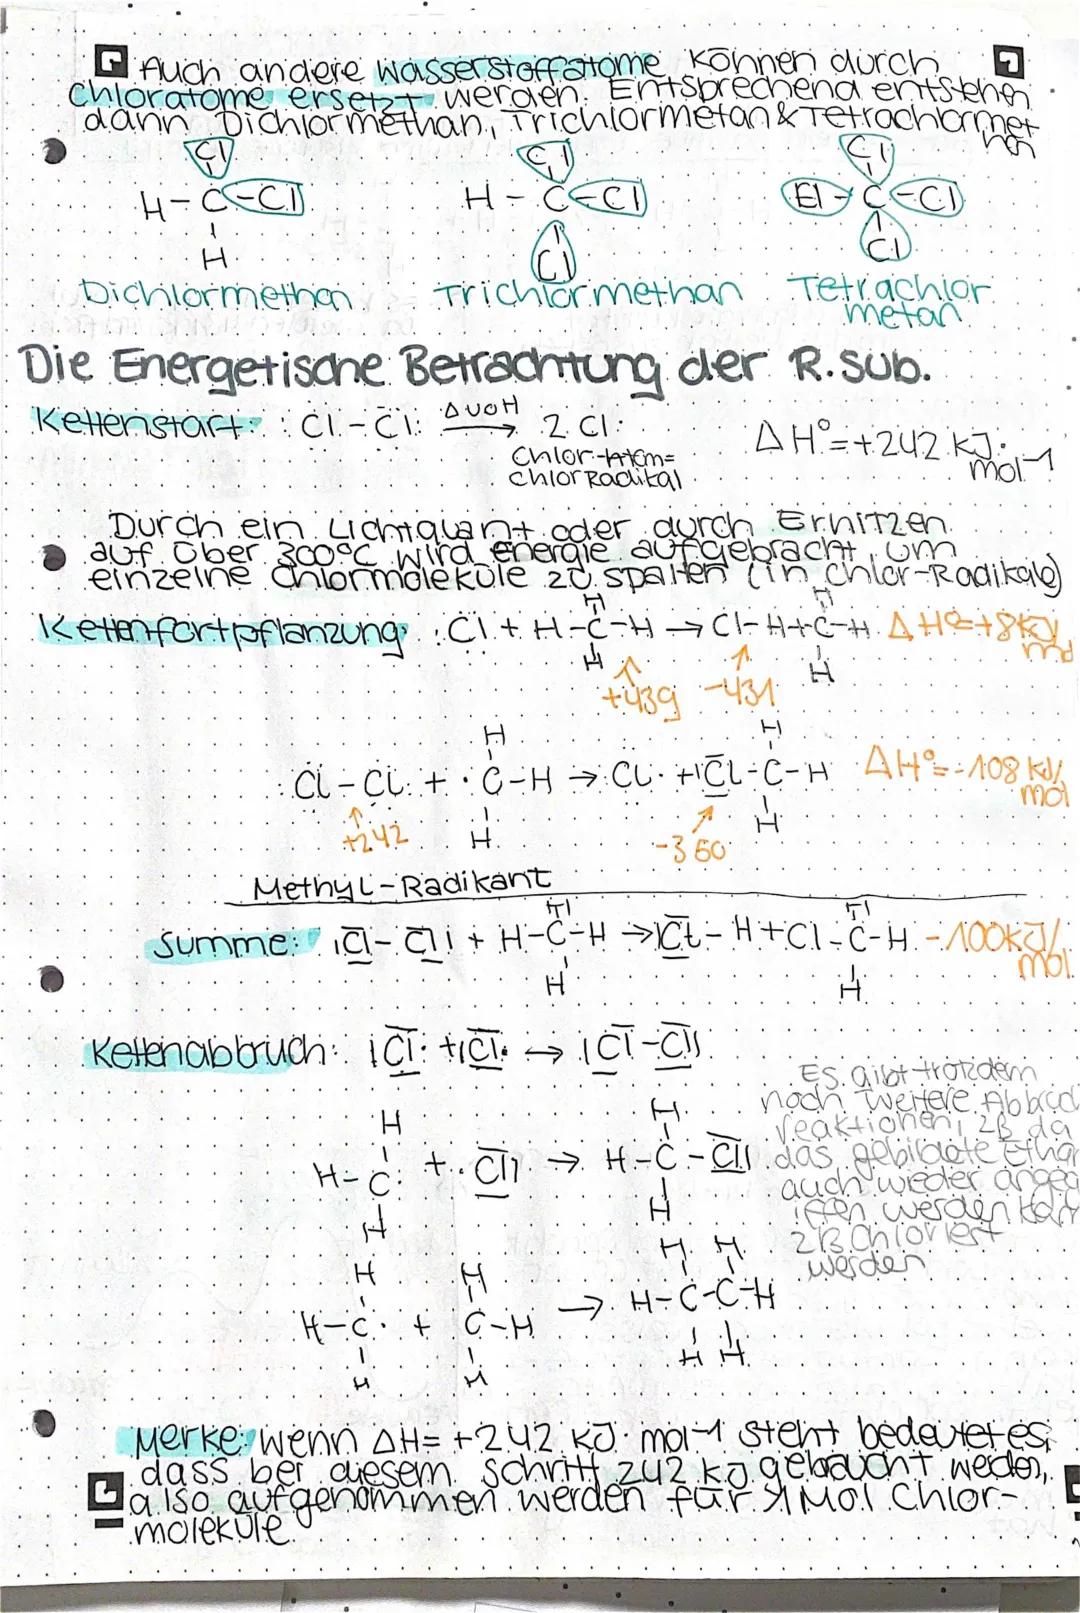 Auch andere Wasserstoffatome können durch
Chloratome ersetzt werden. Entsprechend entstehen
dann Dichlormethan, Trichlormetan & Tetrachlormet
han
Cl Cl Cl
H-C-Cl H-C-Cl Cl-C-Cl
H Cl Cl
Dichlormethan Trichlormethan Tetrachlor
metan
Die Energetische Betrachtung der R.Sub.
Kettenstart: Cl-Cl → 2 Cl· ΔH°=+242 kJ·
mol-1
Chlor-Atom=
chlorRadikal
Durch ein Lichtquant oder durch Erhitzen
auf über 300°C wird energie aufgebracht, um
einzelne Chlormoleküle zu spalten (in chlor-Radikale)
H H
Kettenfortpflanzung: :Cl + H-C-H → Cl-H+C-H ΔH°=+8KJ/
mol
H H
+439 -431
H H
Cl-Cl: + ·C-H → Cl· + |Cl-C-H ΔH°=-108 kJ/
mol
H H
+242 -350
Methyl-Radikant
H H
Summe: |Cl-Cl| + H-C-H → |Cl-H+Cl-C-H -100KJ/
mol
H H
Kettenabbruch: |Cl· + |Cl· → |Cl-Cl|
Es gibt trotzdem
noch weitere Abbruch
reaktionen, zB da
das gebildete Ethan
auch wieder angegr
iffen werden kann
zB chloriert
werden
H H
H-C· + ·Cl| → H-C-Cl|
H H
H H H H
H-C· + C-H → H-C-C-H
H H H H
Merke: wenn ΔH= +242 kJ·mol-1 steht bedeutet es,
dass bei diesem Schritt 242 kJ gebraucht werden,
also aufgenommen werden für 1 Mol Chlor-
moleküle.